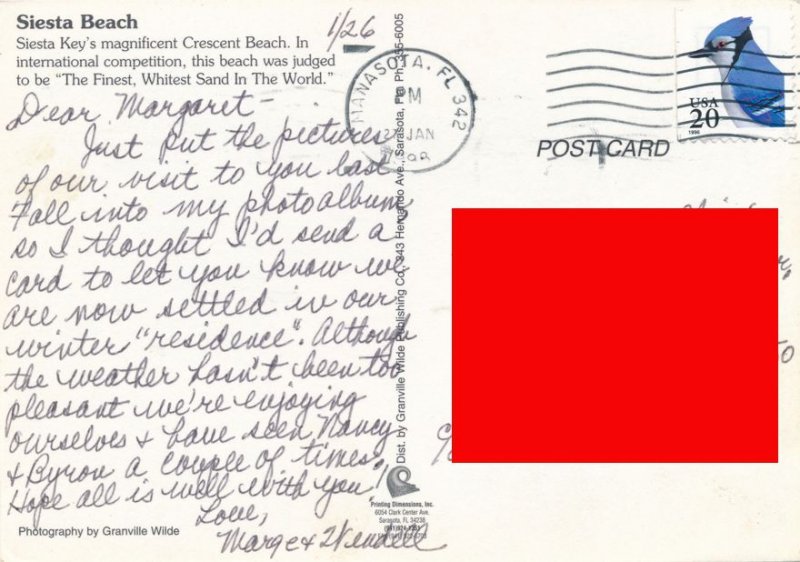 Siesta Beach
Siesta Key's magnificent Crescent Beach. In
international competition, this beach was judged
to be "The Finest, Whitest Sand In The World."
1/26
Dear Margaret –
Just put the pictures
of our visit to you last
Fall into my photo album,
so I thought I'd send a
card to let you know we
are now settled in our
winter "residence". Although
the weather hasn't been too
pleasant we're enjoying
ourselves & have seen Nancy
& Byron a couple of times.
Hope all is well with you!
Love,
Marge & Wendell
Photography by Granville Wilde
Dist. by Granville Wilde Publishing Co., 343 Hernando Ave., Sarasota, Fla Ph. 355-6005
Printing Dimensions, Inc.
6054 Clark Center Ave.
Sarasota, FL 34238
MANASOTA, FL 342
PM
JAN
USA
20
1996
POST CARD